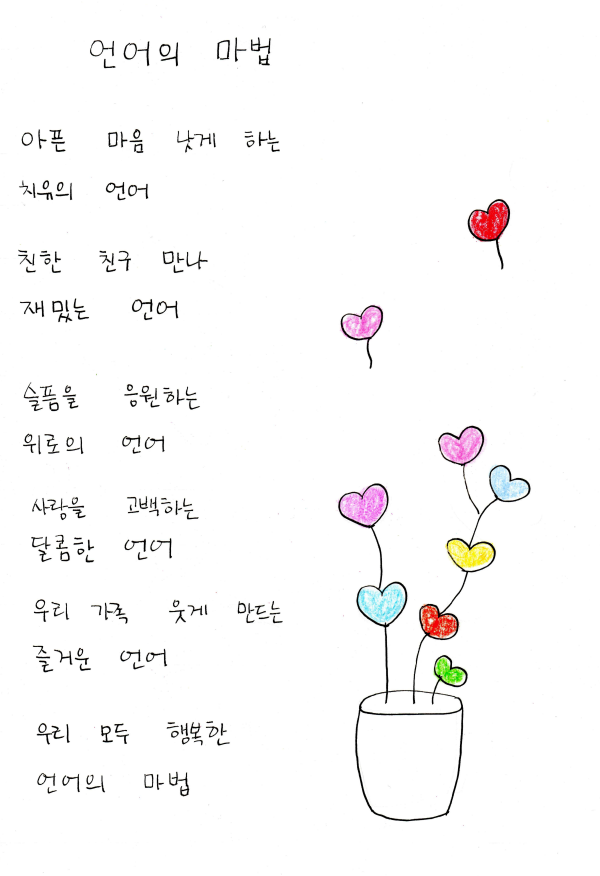 언어의 마법
아픈 마음 낫게 하는
치유의 언어
친한 친구 만나
재밌는 언어
슬픔을 응원하는
위로의 언어
사랑을 고백하는
달콤한 언어
우리 가족 웃게 만드는
즐거운 언어
우리 모두 행복한
언어의 마법